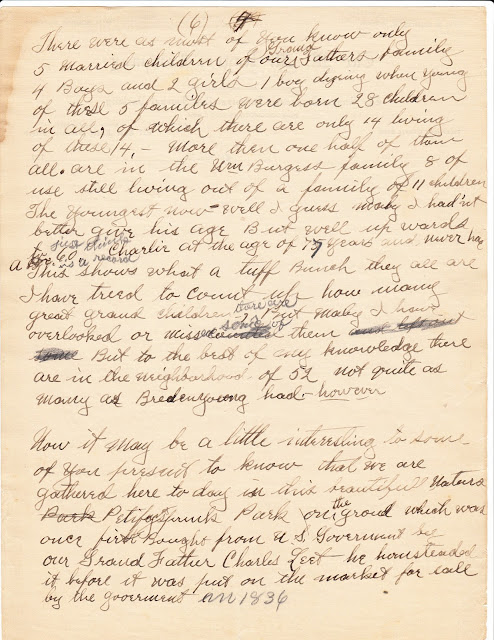 (6)
There were as most of you know only
5 married children of our Grand Fathers family
4 Boys and 2 girls 1 boy dying when young
of these 5 families were born 28 children
in all, of which there are only 14 living
of these 14, - more then one half of them
all. are in the Wm Burgess family 8 of
use still living out of a family of 11 children
The Youngest now - well I guess maby I had'nt
better give his age But well up wards
just think
Charlie at the age of 79 years and never had
a is a record
This shows what a tuff Bunch they all are
I have treed to count up how many
great grand children there are But maby I have
overlooked or missed some of them
But to the best of my knowledge there
are in the neighborhood of 52 not quite as
many as Bredenyoung had however
Now it may be a little interesting to some
of you present to know that we are
gathered here to day in this beautifull Nature
Park Petifosprunk Park on the groud which was
once first Bought from U S Goverment by
our Grand Father Charles Leet - he homsteaded
it before it was put on the market for sall
by the goverment in 1836